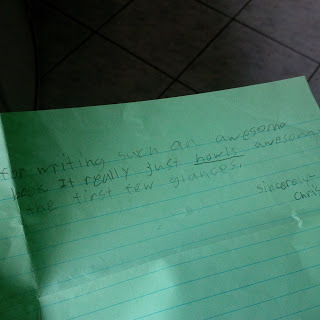 for writing such an awesome
book. It really just howls awesom
the first few glances.
Sincerely-
Chris